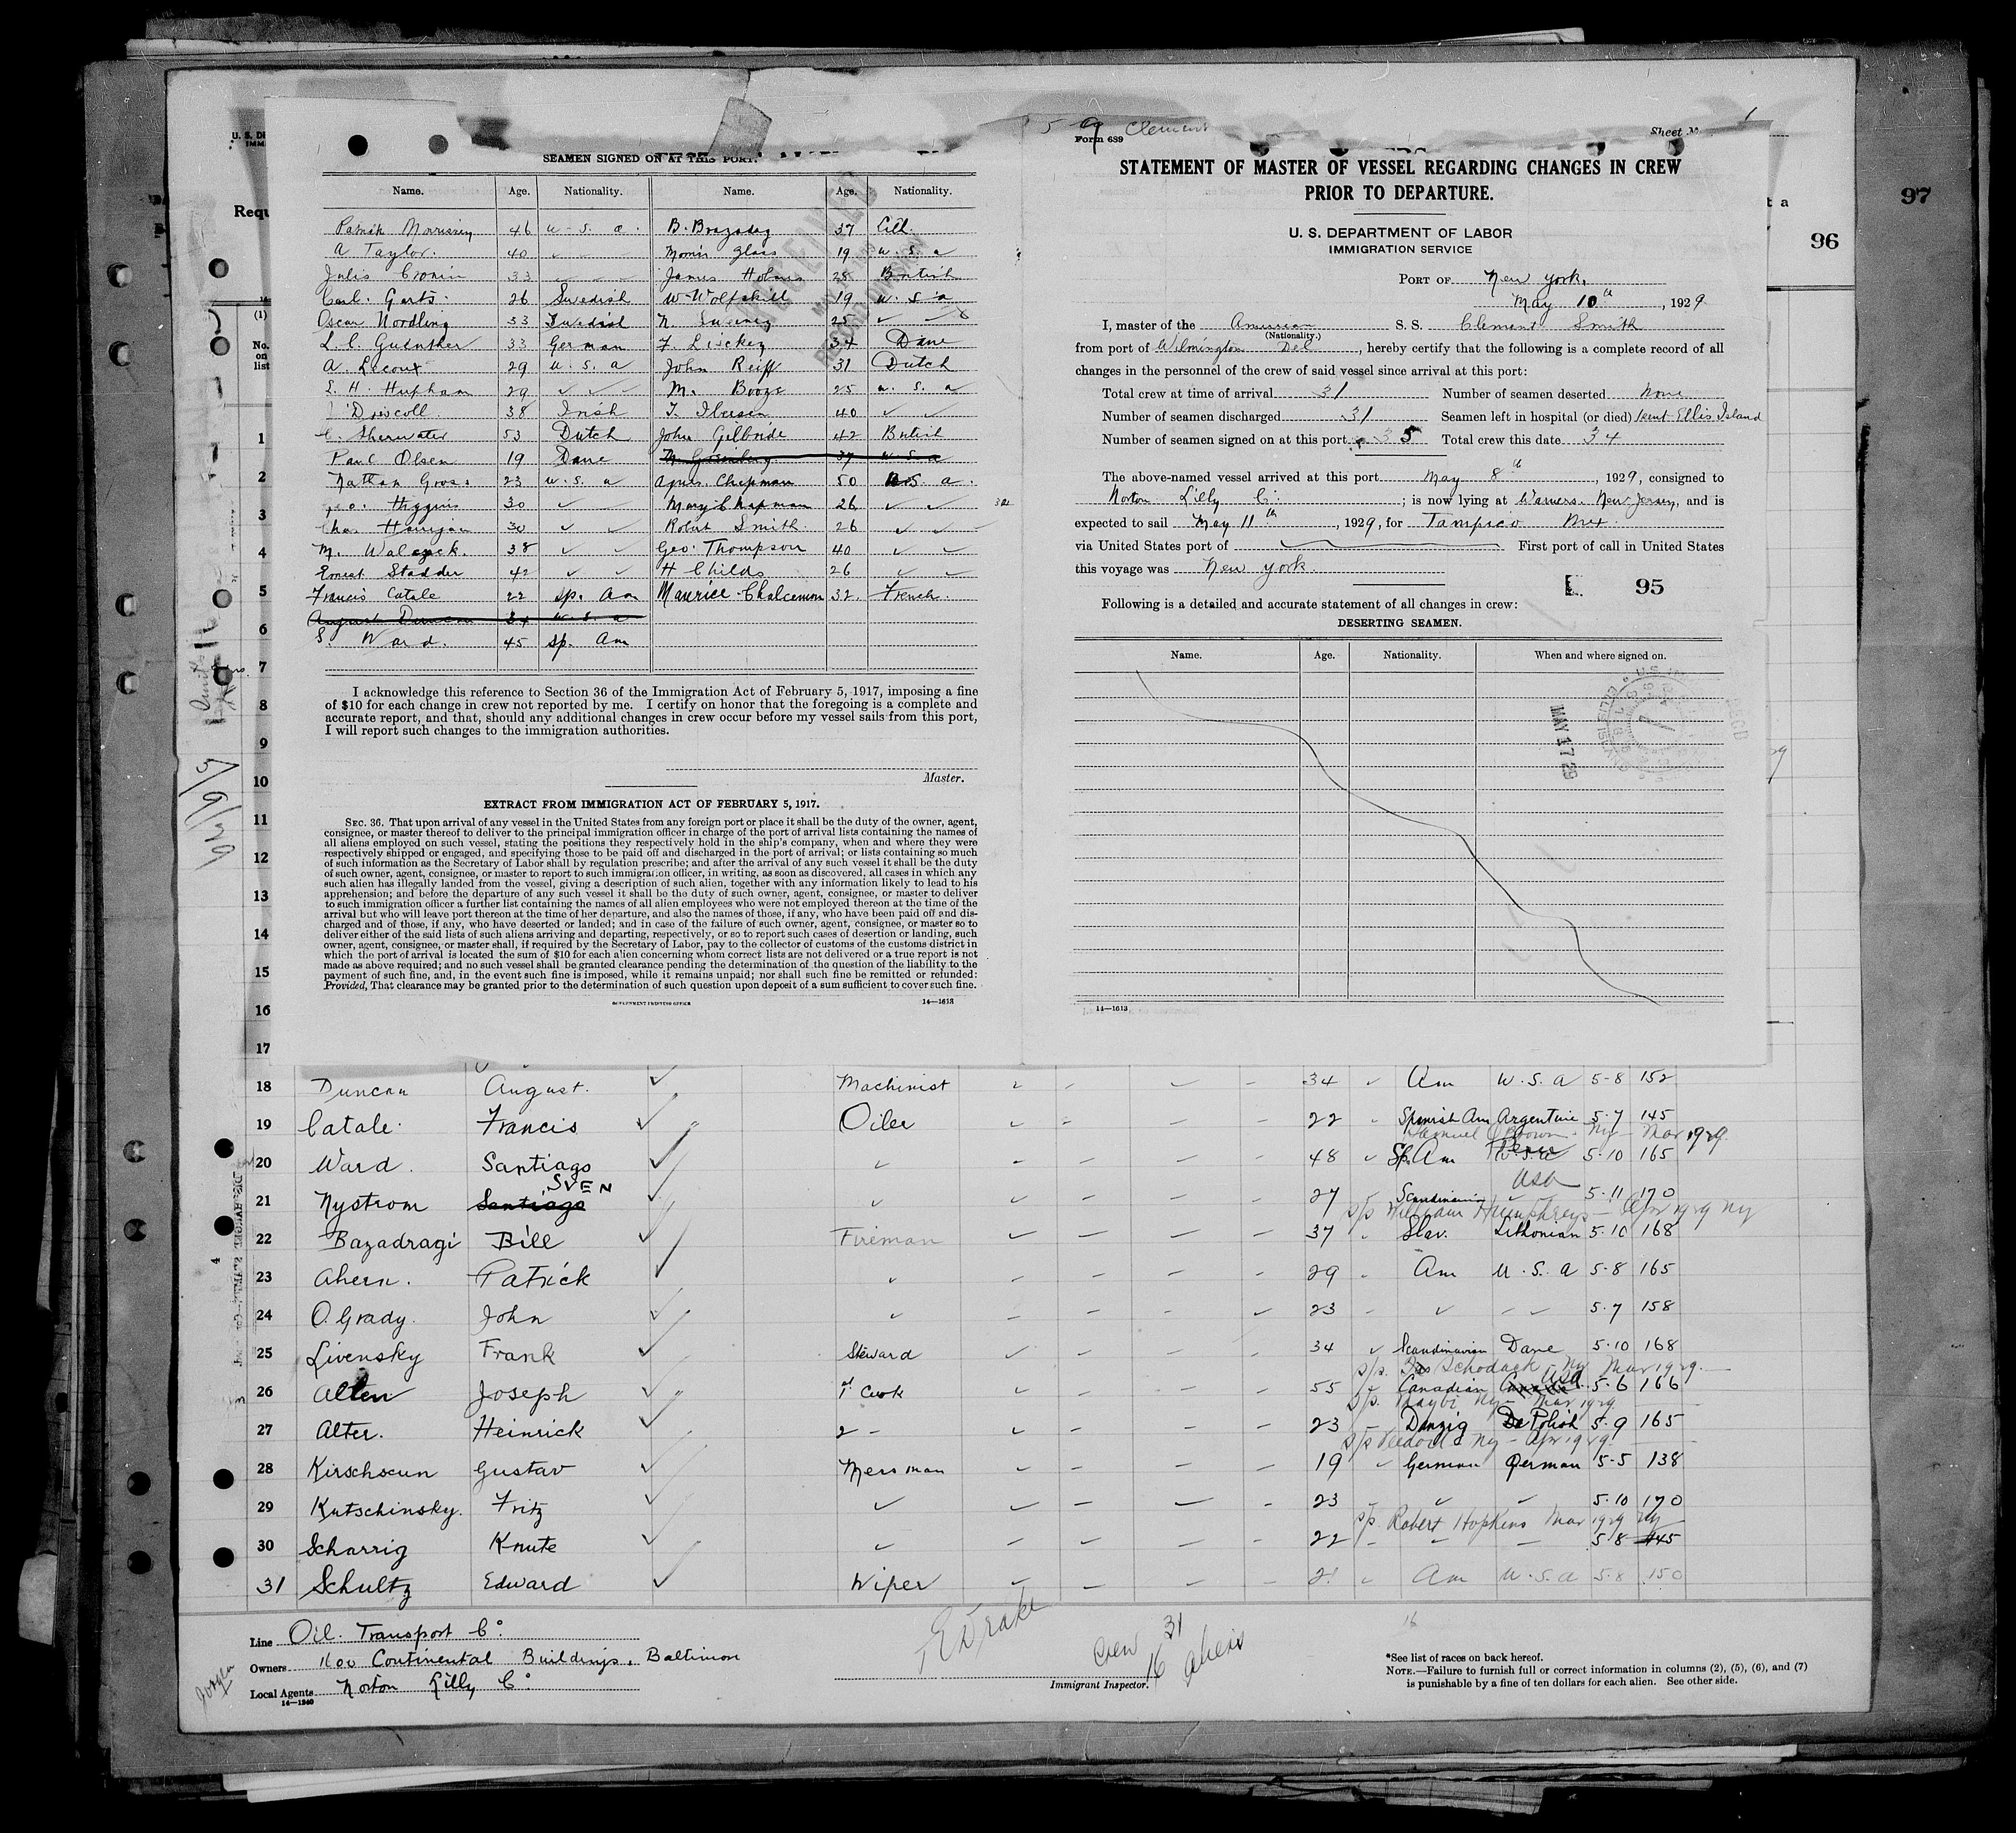 97
96
SEAMEN SIGNED ON AT THIS PORT.
Name. Age. Nationality. Name. Age. Nationality.
Patrick Morrissey 46 U.S.A. B. 37
A Taylor. 40 Morris Glass 19 U.S.A
Julis Cronin 33 James Holmes 28 British
Carl. Garts. 26 Swedish W Wolfskill 19 U.S.A
Oscar Nordling 33 Swedish 25
L. C. Guenther 33 German F. 34 Dane
A. Lecoux 29 U.S.A John Reiff 31 Dutch
L. H. Hupham 29 M. Booze 25 U.S.A
Driscoll 38 Irish T. Ibersen 40
C. Sherwater 53 Dutch John Gilbride 42 British
Paul Olsen 19 Dane 37 U.S.A
Nathan Gross 23 U.S.A Agnes. Chapman 50 U.S.A.
Geo. Higgins 30 Mary Chapman 26
Chas Harrigan 30 Robert Smith 26
M. Walczek. 38 Geo. Thompson 40
Ernest Stadder 42 H Childs 26
Francis Catale 22 Sp. Am Maurice Chalcemon 32. French.
August Duncan 34 U.S.A
S. Ward. 45 Sp. Am
I acknowledge this reference to Section 36 of the Immigration Act of February 5, 1917, imposing a fine
of $10 for each change in crew not reported by me. I certify on honor that the foregoing is a complete and
accurate report, and that, should any additional changes in crew occur before my vessel sails from this port,
I will report such changes to the immigration authorities.
Master.
EXTRACT FROM IMMIGRATION ACT OF FEBRUARY 5, 1917.
SEC. 36. That upon arrival of any vessel in the United States from any foreign port or place it shall be the duty of the owner, agent,
consignee, or master thereof to deliver to the principal immigration officer in charge of the port of arrival lists containing the names of
all aliens employed on such vessel, stating the positions they respectively hold in the ship's company, when and where they were
respectively shipped or engaged, and specifying those to be paid off and discharged in the port of arrival; or lists containing so much
of such information as the Secretary of Labor shall by regulation prescribe; and after the arrival of any such vessel it shall be the duty
of such owner, agent, consignee, or master to report to such immigration officer, in writing, as soon as discovered, all cases in which any
such alien has illegally landed from the vessel, giving a description of such alien, together with any information likely to lead to his
apprehension; and before the departure of any such vessel it shall be the duty of such owner, agent, consignee, or master to deliver
to such immigration officer a further list containing the names of all alien employees who were not employed thereon at the time of the
arrival but who will leave port thereon at the time of her departure, and also the names of those, if any, who have been paid off and dis-
charged and of those, if any, who have deserted or landed; and in case of the failure of such owner, agent, consignee, or master so to
deliver either of the said lists of such aliens arriving and departing, respectively, or so to report such cases of desertion or landing, such
owner, agent, consignee, or master shall, if required by the Secretary of Labor, pay to the collector of customs of the customs district in
which the port of arrival is located the sum of $10 for each alien concerning whom correct lists are not delivered or a true report is not
made as above required; and no such vessel shall be granted clearance pending the determination of the question of the liability to the
payment of such fine, and, in the event such fine is imposed, while it remains unpaid; nor shall such fine be remitted or refunded:
Provided, That clearance may be granted prior to the determination of such question upon deposit of a sum sufficient to cover such fine.
GOVERNMENT PRINTING OFFICE 14—1613
Form 689 Clement Sheet 1
STATEMENT OF MASTER OF VESSEL REGARDING CHANGES IN CREW
PRIOR TO DEPARTURE.
U. S. DEPARTMENT OF LABOR
IMMIGRATION SERVICE
PORT OF New York,
May 10th, 1929
I, master of the American S. S. Clement Smith
(Nationality.)
from port of Wilmington Del, hereby certify that the following is a complete record of all
changes in the personnel of the crew of said vessel since arrival at this port:
Total crew at time of arrival 31 Number of seamen deserted None
Number of seamen discharged 31 Seamen left in hospital (or died) 1 sent Ellis Island
Number of seamen signed on at this port 35 Total crew this date 34
The above-named vessel arrived at this port May 8th, 1929, consigned to
Norton Lilly Co; is now lying at Warners. New Jersey, and is
expected to sail May 11th, 1929, for Tampico Mex.
via United States port of First port of call in United States
this voyage was New York.
95
Following is a detailed and accurate statement of all changes in crew:
DESERTING SEAMEN.
Name. Age. Nationality. When and where signed on.
MAY 17 29
14—1613
5/9/29
(1)
No.
on
list
1
2
3
4
5
6
7
8
9
10
11
12
13
14
15
16
17
18 Duncan August. Machinist 34 Am U.S.A 5-8 152
19 Catale. Francis Oiler 22 Spanish Am Argentine 5-7 145
20 Ward. Santiago 48 Sp. Am 5-10 165
SVEN
21 Nystrom Santiago 27 Scandinavian 5-11 170
S/S William Humphreys - Apr 1929 NY
22 Bazadragi Bill Fireman 37 Slav. Lithonian 5-10 168
23 Ahern. Patrick 29 Am U.S.A 5-8 165
24 O. Grady. John 23 5-7 158
25 Livensky Frank Steward 34 Scandinavian Dane 5-10 168
S/S. Schodack - NY Mar 1929.
26 Allen Joseph 1st Cook 55 Canadian USA 5-6 166
27 Alter. Heinrick 2 23 Danzig Polish 5-9 165
28 Kirschseun Gustav Messman 19 German German 5-5 138
29 Kutschinsky. Fritz 23 5-10 170
S/S. Robert Hopkins Mar 1929 NY
30 Scharrig Knute 22 5-8 145
31 Schultz Edward Wiper 21 Am U.S.A 5-8 150
Line Oil. Transport Co.
Owners 1600 Continental Buildings, Baltimore
Local Agents Norton Lilly Co.
14—1240
E Drake
Crew 31
16 aliens
Immigrant Inspector.
16
*See list of races on back hereof.
NOTE.—Failure to furnish full or correct information in columns (2), (5), (6), and (7)
is punishable by a fine of ten dollars for each alien. See other side.